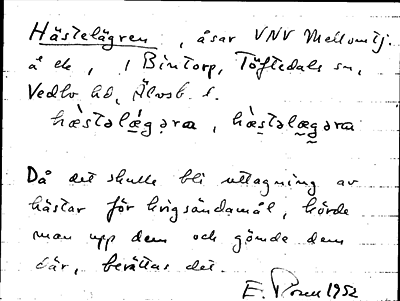 Hästelägren, åsar VNV Mellomtj.
å ek, i Bintorp, Töftedals sn,
Vedbo hd, Älvsb. l.
hæ̀stəlǽgəra, hæ̀stəlægəra
Då det skulle bli uttagning av
hästar för krigsändamål, körde
man upp dem och gömde dem
där, berättas det.
E. 1952